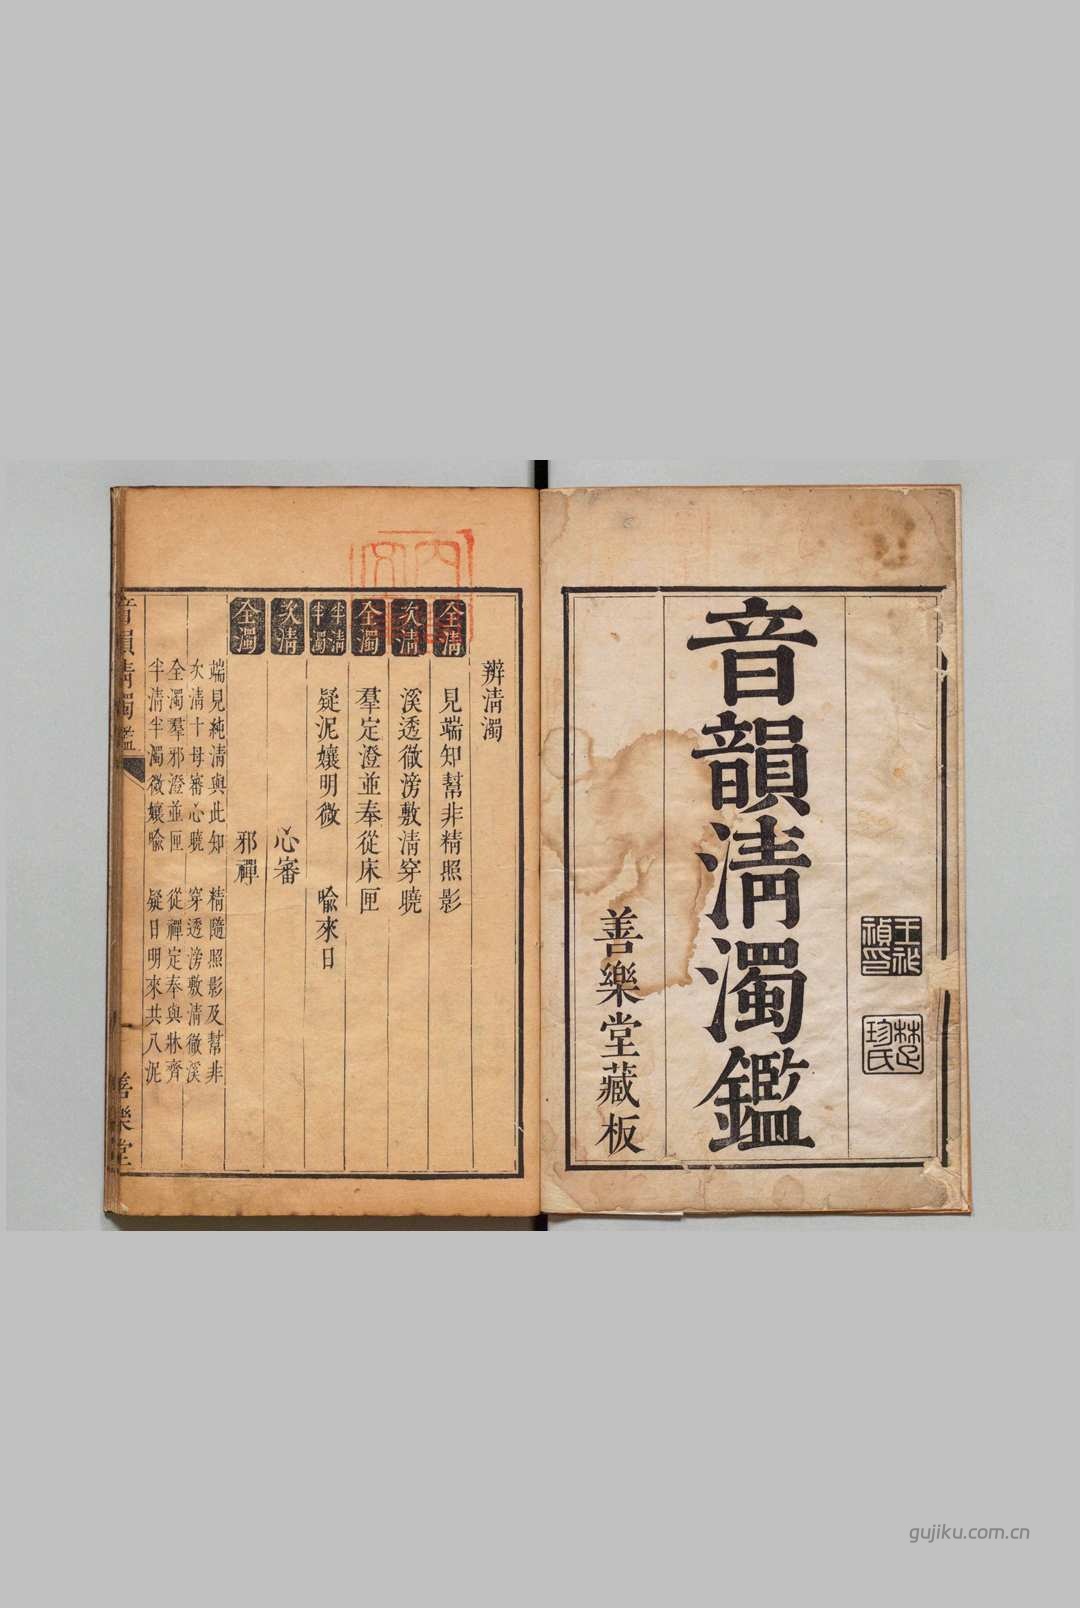 音韻清濁鑑
善樂堂藏板
王祚禎印
楚珍氏
辨清濁
全清 見端知幫非精照影
次清 溪透徹滂敷清穿曉
全濁 羣定澄並奉從床匣
半清半濁 疑泥孃明微 喻來日
次清 心審
全濁 邪禪
端見純清與此知 精隨照影及幫非
次清十母審心曉 穿透滂敷清徹溪
全濁羣邪澄並匣 從禪定奉與牀齊
半清半濁微孃喻 疑日明來共八泥
音韻清濁鑑
一
善樂堂
gujiku.com.cn